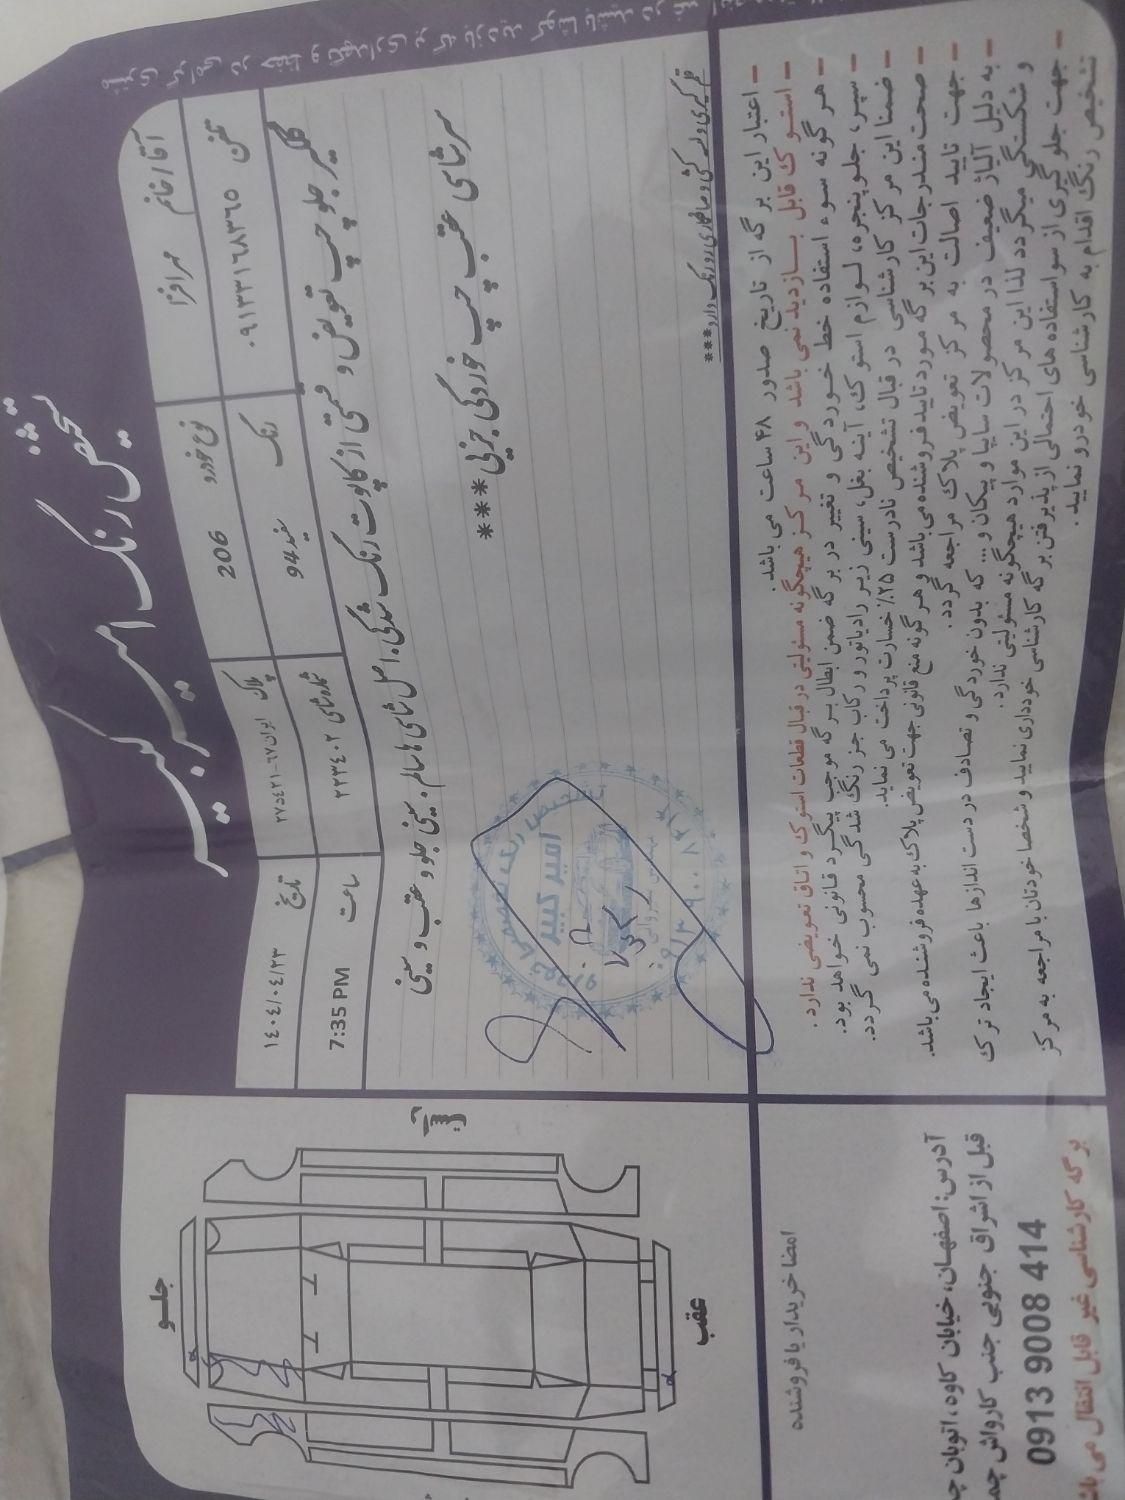 تشخیص رنگ امیرکبیر
آقا/خانم مهرافزا
نوع خودرو 206
پلاک ایران ۶۷-۴۲۱د۲۷
تاریخ ۱۴۰۴/۰۴/۲۳
تلفن ۰۹۱۳۳۱۶۸۳۶۵
رنگ سفید 94
شماره شاسی ۲۲۳۴۰۲
ساعت 7:35 PM
گلگیر جلو چپ تعویض و قسمتی از کاپوت رنگ شدگی. اصل شاسی ها سالم. سینی جلو و عقب و سینی
سرشاسی عقب چپ خوردگی جزئی***
قلم گیری و لیسه کشی و صافکاری روی رنگ دارد***
– اعتبار این برگه از تاریخ صدور ۴۸ ساعت می باشد.
– استوک قابل بازدید نمی باشد و این مرکز هیچگونه مسئولیتی در قبال قطعات استوک و اتاق تعویضی ندارد.
– هر گونه سوء استفاده خط خوردگی و تغییر در برگه ضمن ابطال برگه موجب پیگرد قانونی خواهد بود.
– سپر، جلوپنجره، لوازم استوک، آینه بغل، سینی زیر رادیاتور و رکاب جز رنگ شدگی محسوب نمی گردد.
ضمنا این مرکز کارشناسی در قبال تشخیص نادرست ۲۵٪ خسارت پرداخت می نماید.
– صحت مندرجات این برگه مورد تایید فروشنده می باشد و هر گونه منع قانونی جهت تعویض پلاک به عهده فروشنده می باشد.
– جهت تایید اصالت به مرکز تعویض پلاک مراجعه گردد.
– به دلیل آلیاژ ضعیف در محصولات سایپا و پیکان و ... که بدون خوردگی و تصادف در دست اندازها باعث ایجاد ترک
و شکستگی میگردد لذا این مرکز در این موارد هیچگونه مسئولیتی ندارد.
– جهت جلوگیری از سواستفاده های احتمالی از پذیرفتن برگه کارشناسی خودداری نمایید و شخصا خودتان با مراجعه به مرکز
تشخیص رنگ اقدام به کارشناسی خودرو نمایید.
تشخیص رنگ تخصصی
امیر کبیر
جلو
عقب
امضا خریدار یا فروشنده
آدرس: اصفهان، خیابان کاوه، اتوبان
قبل از اشراق جنوبی جنب کارواش
0913 9008 414
برگه کارشناسی غیر قابل انتقال می